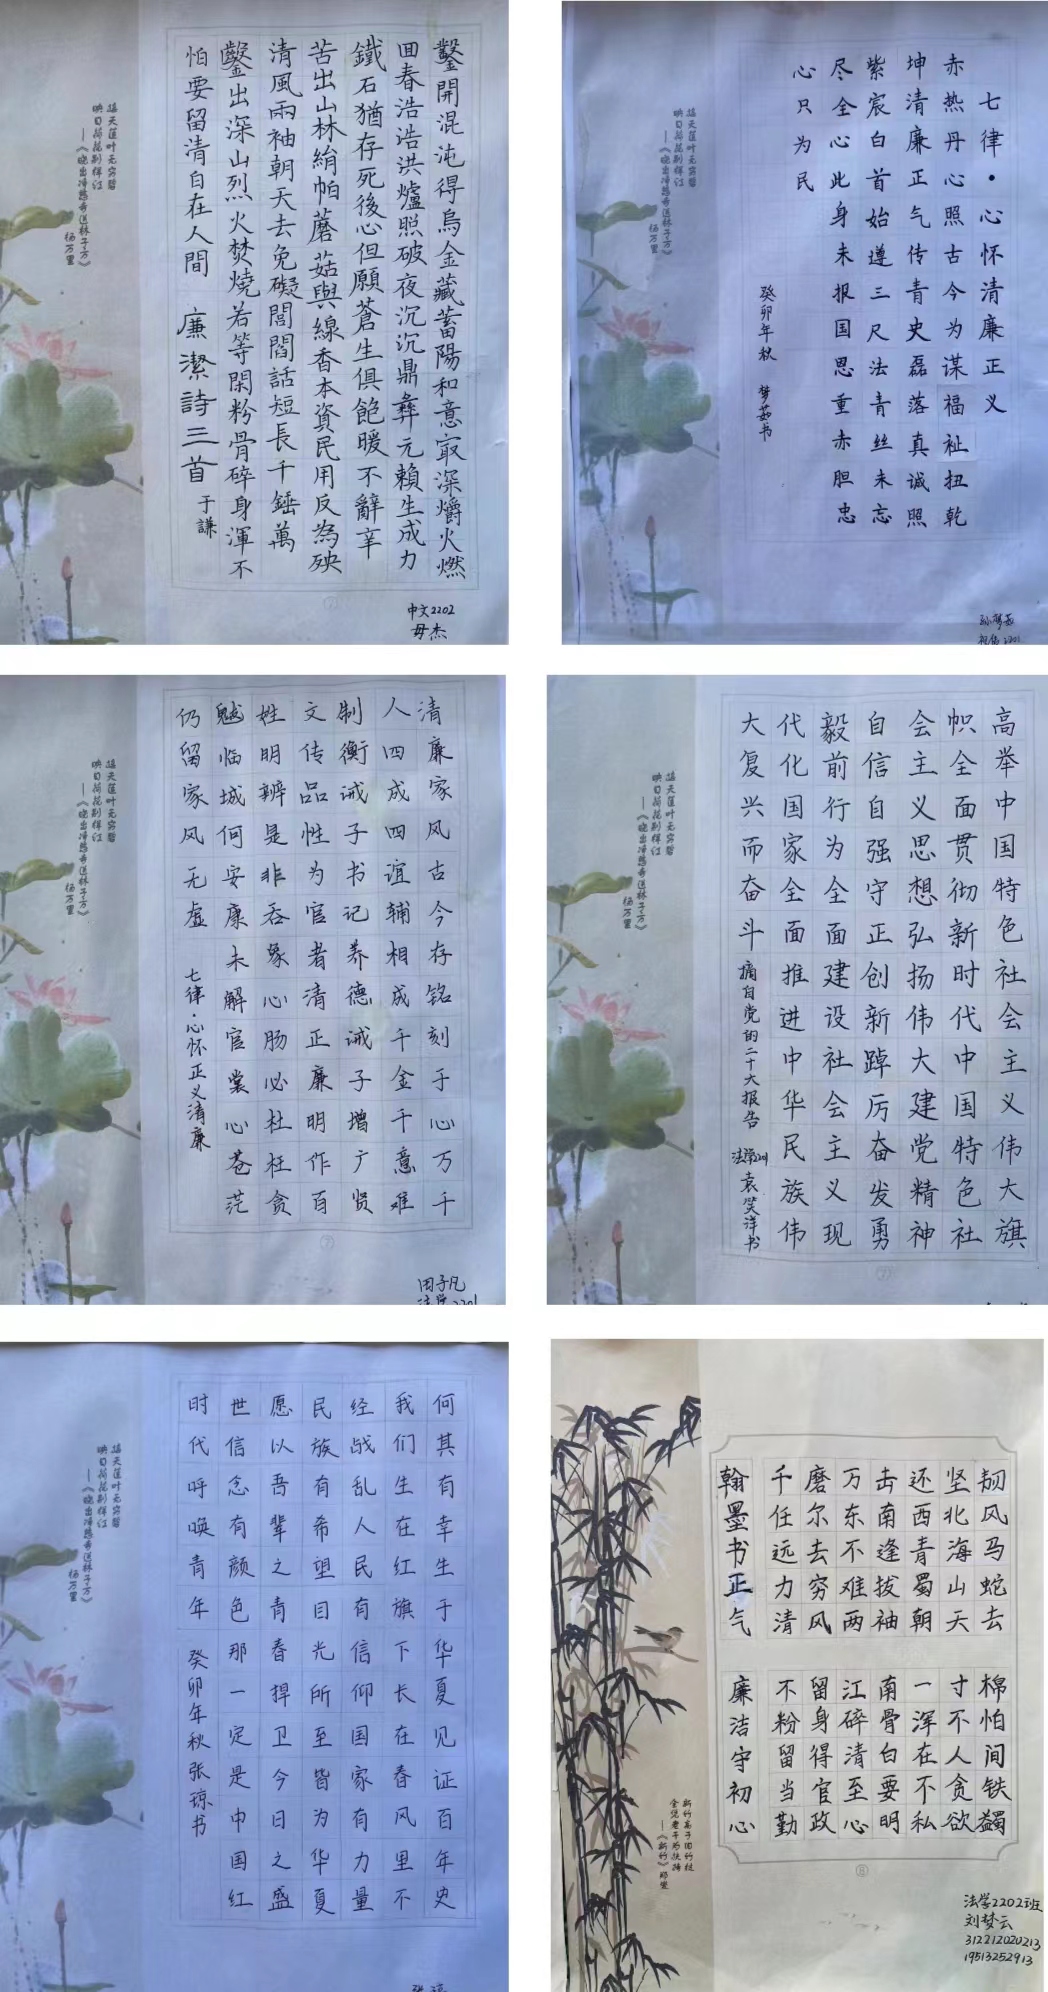 鑿開混沌得烏金藏蓄陽和意㝡深爝火燃
回春浩浩洪爐照破夜沉沉鼎彝元賴生成力
鐵石猶存死後心但願蒼生俱飽暖不辭辛
苦出山林絹帕蘑菇與線香本資民用反為殃
清風兩袖朝天去免礙閭閻話短長千錘萬
鑿出深山烈火焚燒若等閑粉骨碎身渾不
怕要留清白在人間 廉潔詩三首 于謙
接天莲叶无穷碧
映日荷花别样红
—《晓出净慈寺送林子方》
杨万里
中文2202
毋杰
七律·心怀清廉正义
赤热丹心照古今为谋福祉扭乾
坤清廉正气传青史磊落真诚照
紫宸白首始遵三尺法青丝未忘
尽全心此身未报国思重赤胆忠
心只为民
癸卯年秋 梦茹书
接天莲叶无穷碧
映日荷花别样红
—《晓出净慈寺送林子方》
杨万里
清廉家风古今存铭刻于心万千
人四成四谊辅相成千金千意难
制衡诫子书记养德诫子增广贤
文传品性为官者清正廉明作百
姓明辨是非吞象心肠必杜枉贪
魃临城何安康未解官裳心苍茫
仍留家风无虚 七律·心怀正义清廉
接天莲叶无穷碧
映日荷花别样红
—《晓出净慈寺送林子方》
杨万里
田子凡
法学2201
高举中国特色社会主义伟大旗
帜全面贯彻新时代中国特色社
会主义思想弘扬伟大建党精神
自信自强守正创新踔厉奋发勇
毅前行为全面建设社会主义现
代化国家全面推进中华民族伟
大复兴而奋斗 摘自党的二十大报告 法学2201 袁笑洋书
接天莲叶无穷碧
映日荷花别样红
—《晓出净慈寺送林子方》
杨万里
何其有幸生于华夏见证百年史
我们生在红旗下长在春风里不
经战乱人民有信仰国家有力量
民族有希望目光所至皆为华夏
愿以吾辈之青春捍卫今日之盛
世信念有颜色那一定是中国红
时代呼唤青年 癸卯年秋张琼书
接天莲叶无穷碧
映日荷花别样红
—《晓出净慈寺送林子方》
杨万里
韧风马蛇去 棉怕间铁蠲
坚北海山天 寸不人贪欲
还西青蜀朝 一浑在不私
击南逢拔袖 南骨白要明
万东不难两 江碎清至心
磨尔去穷风 留身得官政
千任远力清 不粉留当勤
翰墨书正气 廉洁守初心
新竹高于旧竹枝
全凭老干为扶持
—《新竹》郑燮
法学2202班
刘梦云
312212020213
19513252913